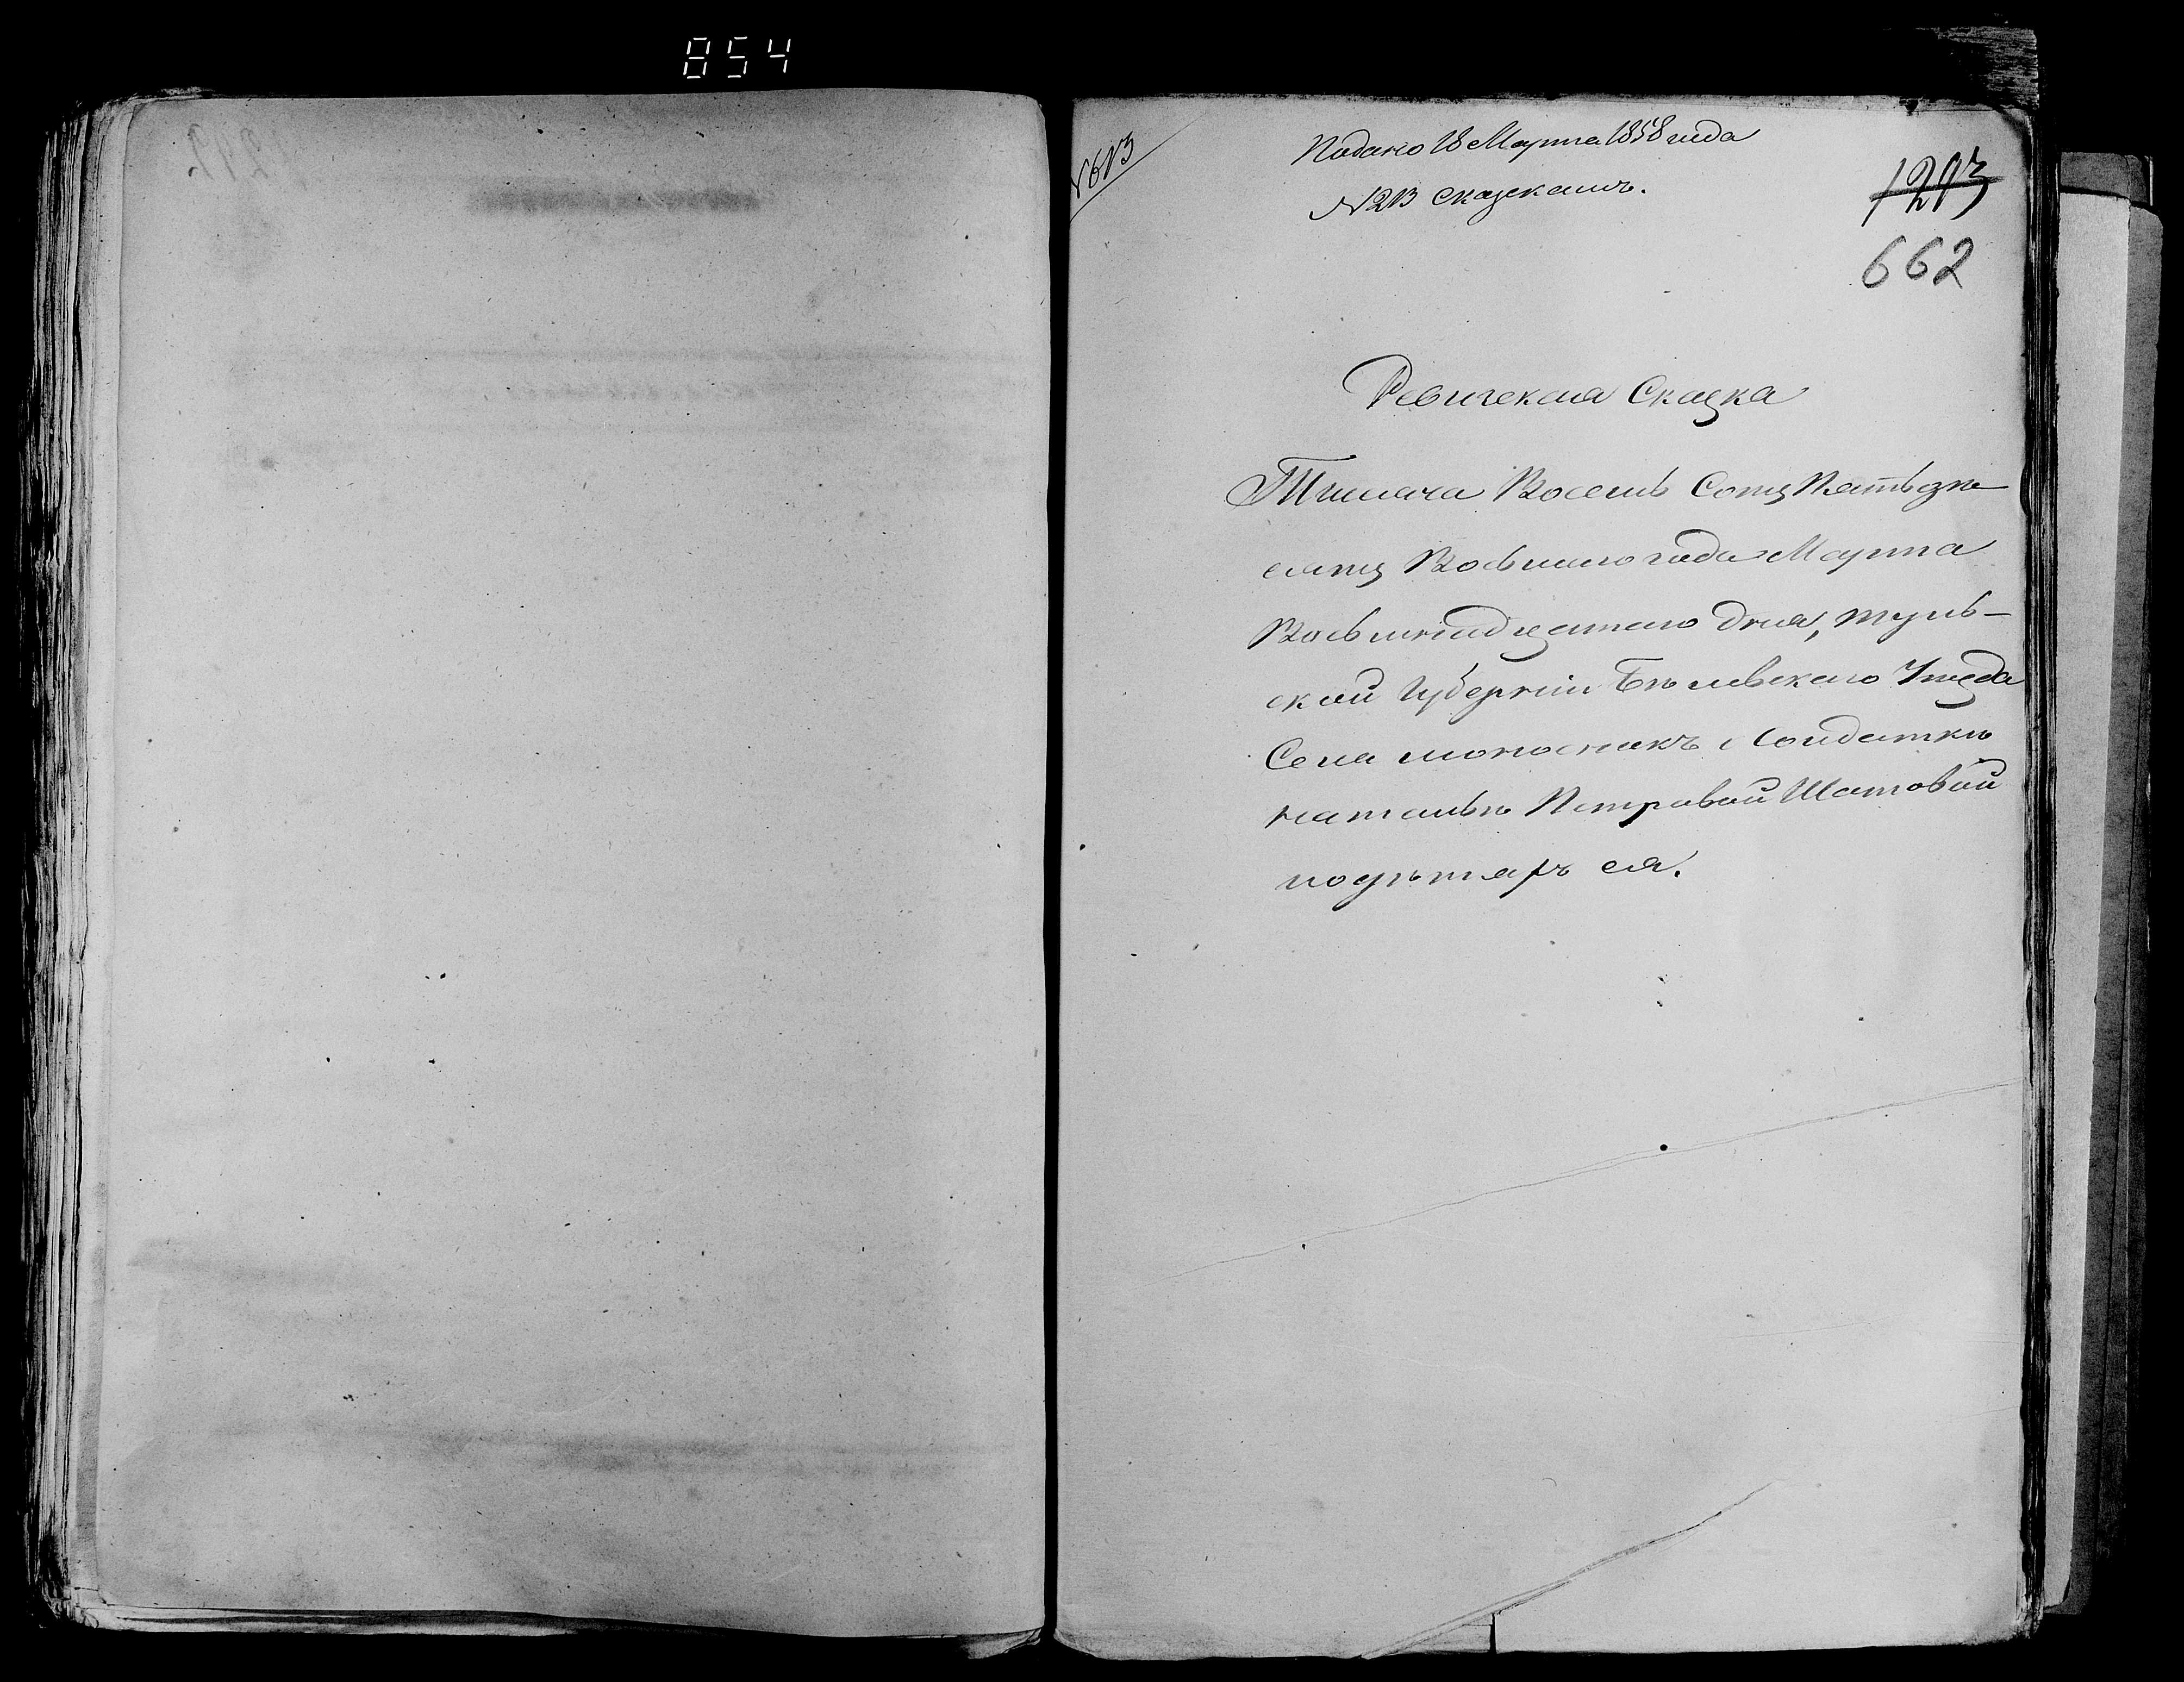 854
Подано 18 Марта 1858 года
№213 сказкамъ.
1293
662
Ревизская Сказка
Тысяча Восемь Сотъ Пятьдес-
сятъ Восьмаго года Марта
Восьмнадцатаго дня, туль-
ской губерніи Бѣлевскаго Уѣзда
Села моноснакъ Солдаткѣ
натальѣ Петровой Шатовой